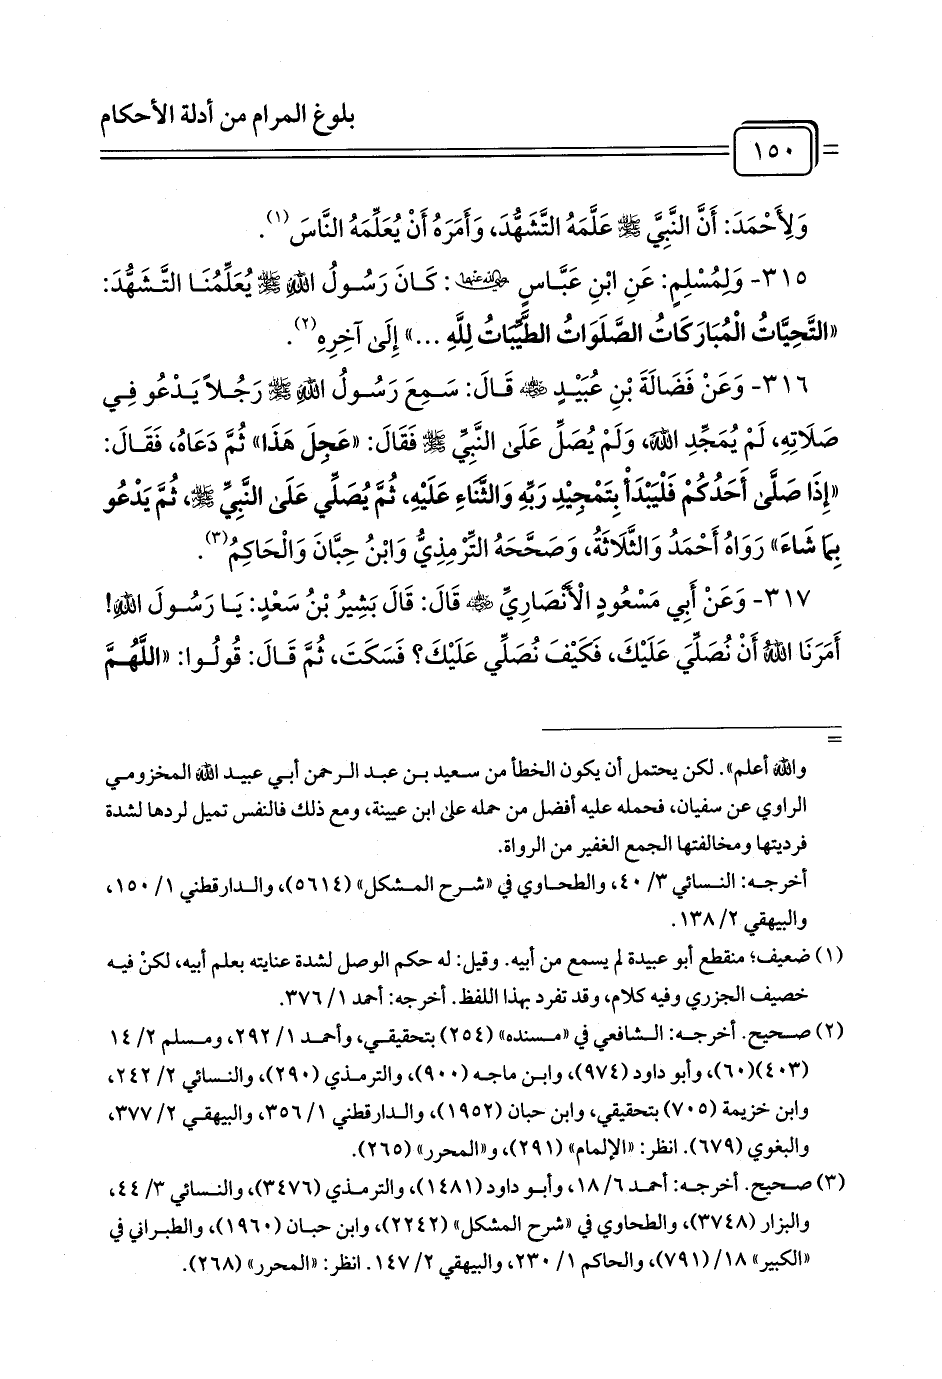 بلوغ المرام من أدلة الأحكام
١٥٠
وَلِأَحْمَدَ: أَنَّ النَّبِيَّ ﷺ عَلَّمَهُ التَّشَهُّدَ، وَأَمَرَهُ أَنْ يُعَلِّمَهُ النَّاسَ (١).
٣١٥- وَلِمُسْلِمٍ: عَنِ ابْنِ عَبَّاسٍ رضي الله عنهما: كَانَ رَسُولُ اللهِ ﷺ يُعَلِّمُنَا التَّشَهُّدَ:
«التَّحِيَّاتُ الْمُبَارَكَاتُ الصَّلَوَاتُ الطَّيِّبَاتُ لِلَّهِ ...» إِلَى آخِرِهِ (٢).
٣١٦- وَعَنْ فَضَالَةَ بْنِ عُبَيْدٍ رضي الله عنه قَالَ: سَمِعَ رَسُولُ اللهِ ﷺ رَجُلاً يَدْعُو فِي
صَلَاتِهِ، لَمْ يُمَجِّدِ اللهَ، وَلَمْ يُصَلِّ عَلَى النَّبِيِّ ﷺ فَقَالَ: «عَجِلَ هَذَا» ثُمَّ دَعَاهُ، فَقَالَ:
«إِذَا صَلَّى أَحَدُكُمْ فَلْيَبْدَأْ بِتَمْجِيدِ رَبِّهِ وَالثَّنَاءِ عَلَيْهِ، ثُمَّ يُصَلِّي عَلَى النَّبِيِّ ﷺ، ثُمَّ يَدْعُو
بِمَا شَاءَ» رَوَاهُ أَحْمَدُ وَالثَّلَاثَةُ، وَصَحَّحَهُ التِّرْمِذِيُّ وَابْنُ حِبَّانَ وَالْحَاكِمُ (٣).
٣١٧- وَعَنْ أَبِي مَسْعُودٍ الْأَنْصَارِيِّ رضي الله عنه قَالَ: قَالَ بَشِيرُ بْنُ سَعْدٍ: يَا رَسُولَ اللهِ!
أَمَرَنَا اللهُ أَنْ نُصَلِّيَ عَلَيْكَ، فَكَيْفَ نُصَلِّي عَلَيْكَ؟ فَسَكَتَ، ثُمَّ قَالَ: قُولُوا: «اللَّهُمَّ
=
والله أعلم». لكن يحتمل أن يكون الخطأ من سعيد بن عبد الرحمن أبي عبيد الله المخزومي
الراوي عن سفيان، فحمله عليه أفضل من حمله على ابن عيينة، ومع ذلك فالنفس تميل لردها لشدة
فرديتها ومخالفتها الجمع الغفير من الرواة.
أخرجه: النسائي ٣/ ٤٠، والطحاوي في «شرح المشكل» (٥٦١٤)، والدارقطني ١/ ١٥٠،
والبيهقي ٢/ ١٣٨.
(١) ضعيف؛ منقطع أبو عبيدة لم يسمع من أبيه. وقيل: له حكم الوصل لشدة عنايته بعلم أبيه، لكنْ فيه
خصيف الجزري وفيه كلام، وقد تفرد بهذا اللفظ. أخرجه: أحمد ١/ ٣٧٦.
(٢) صحيح. أخرجه: الشافعي في «مسنده» (٢٥٤) بتحقيقي، وأحمد ١/ ٢٩٢، ومسلم ٢/ ١٤
(٤٠٣)(٦٠)، وأبو داود (٩٧٤)، وابن ماجه (٩٠٠)، والترمذي (٢٩٠)، والنسائي ٢/ ٢٤٢،
وابن خزيمة (٧٠٥) بتحقيقي، وابن حبان (١٩٥٢)، والدارقطني ١/ ٣٥٦، والبيهقي ٢/ ٣٧٧،
والبغوي (٦٧٩). انظر: «الإلمام» (٢٩١)، و«المحرر» (٢٦٥).
(٣) صحيح. أخرجه: أحمد ٦/ ١٨، وأبو داود (١٤٨١)، والترمذي (٣٤٧٦)، والنسائي ٣/ ٤٤،
والبزار (٣٧٤٨)، والطحاوي في «شرح المشكل» (٢٢٤٢)، وابن حبان (١٩٦٠)، والطبراني في
«الكبير» ١٨/ (٧٩١)، والحاكم ١/ ٢٣٠، والبيهقي ٢/ ١٤٧. انظر: «المحرر» (٢٦٨).